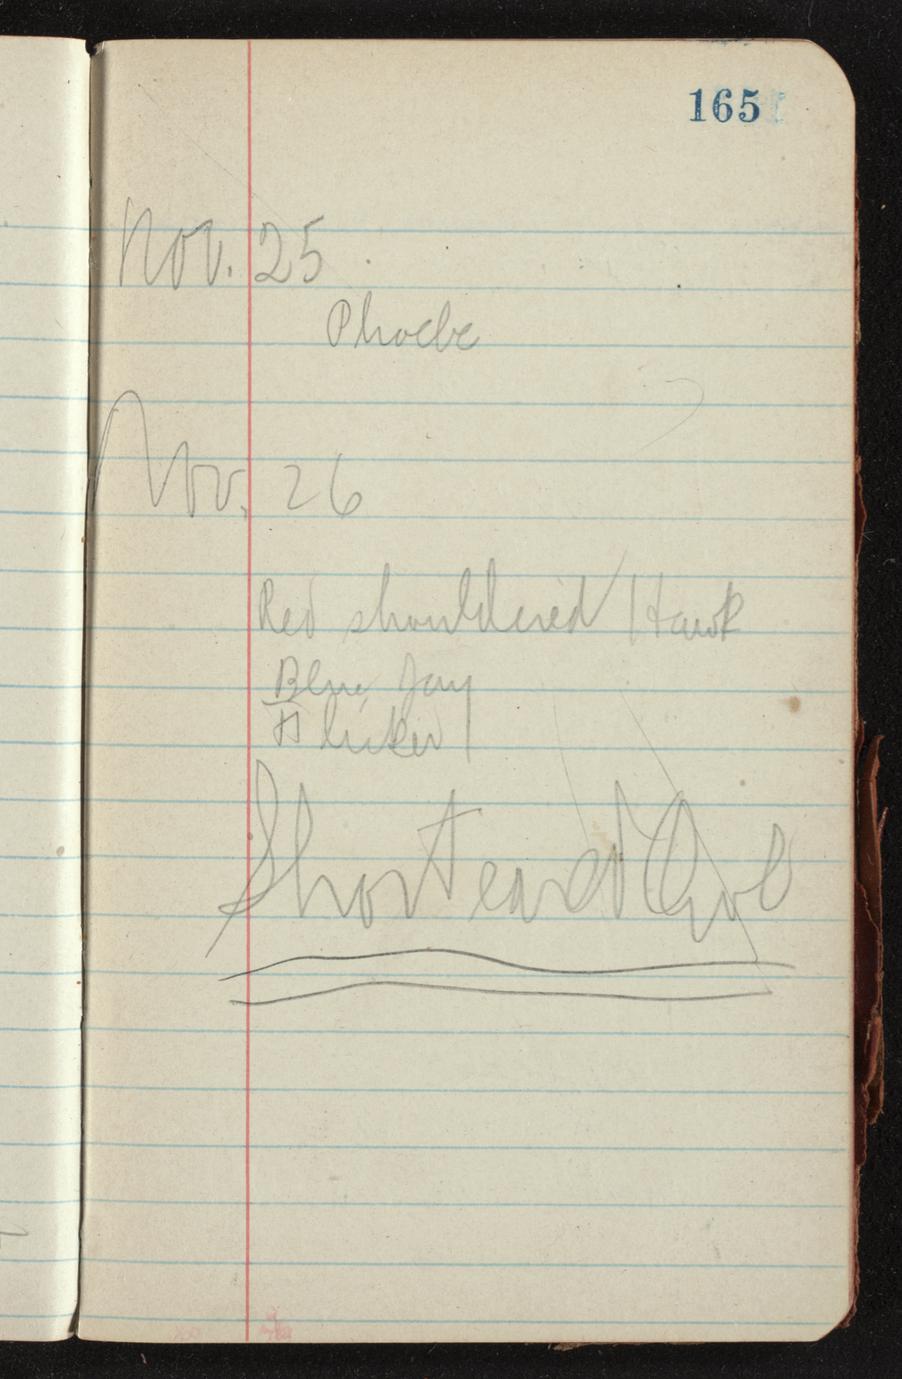 165
Nov. 25
Phoebe
Nov. 26
Red shouldered Hawk
Blue Jay
Flicker
Short eared Owl